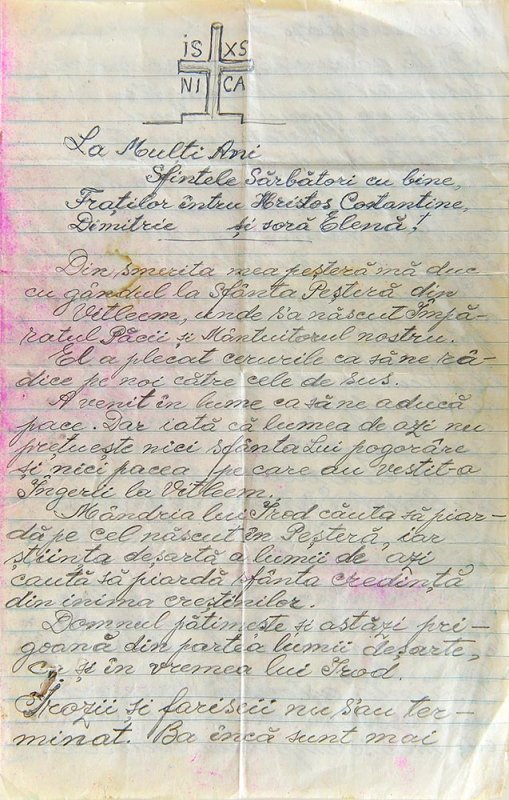 IS XS
NI CA
La Multi Ani
Sfintele Sărbători cu bine,
Fraților întru Hristos Costantine,
Dimitrie și soră Elenă!
Din smerita mea peșteră mă duc
cu gândul la Sfânta Peșteră din
Vitleem, unde s'a născut Împă-
ratul Păcii și Mântuitorul nostru.
El a plecat cerurile ca să ne ră-
dice pe noi către cele de sus.
A venit în lume ca să ne aducă
pace. Dar iată că lumea de azi nu
prețuește nici sfânta Lui pogorâre
și nici pacea pe care au vestit-o
Îngerii la Vitleem.
Mândria lui Irod căuta să piar-
dă pe cel născut în Peșteră, iar
știința deșartă a lumii de azi
caută să piardă sfânta credință
din inima creștinilor.
Domnul pătimește și astăzi pri-
goană din partea lumii deșarte,
ca și în vremea lui Irod.
Irozii și fariseii nu s'au ter-
minat. Ba încă sunt mai